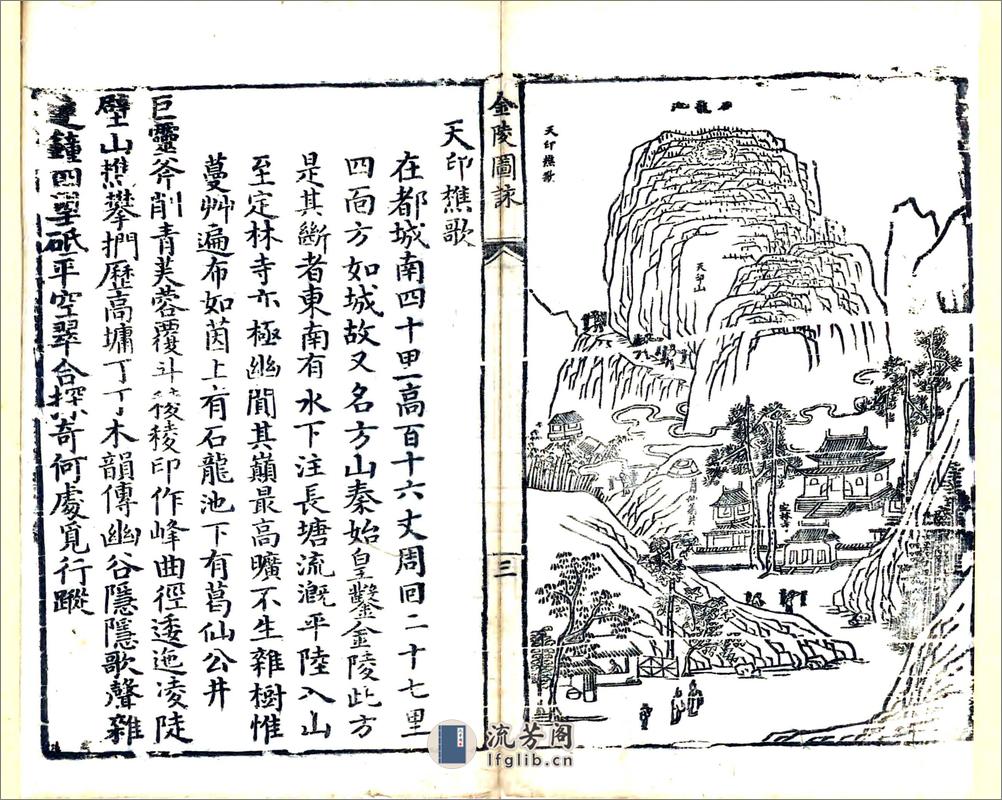 石龍池
天印樵歌
天印山
葛仙翁井
定林寺
金陵圖詠
三
天印樵歌
在都城南四十里高百十六丈周回二十七里
四面方如城故又名方山秦始皇鑿金陵此方
是其斷者東南有水下注長塘流溉平陸入山
至定林寺亦極幽閒其巔最高曠不生雜樹惟
蔓艸遍布如茵上有石龍池下有葛仙公井
巨靈斧削青芙蓉覆斗稜稜印作峰曲徑逶迤凌陡
壁山樵攀捫歷高墉丁丁木韻傳幽谷隱隱歌聲雜
遠鐘四望砥平空翠合探奇何處覓行蹤
流芳阁
lfglib.cn